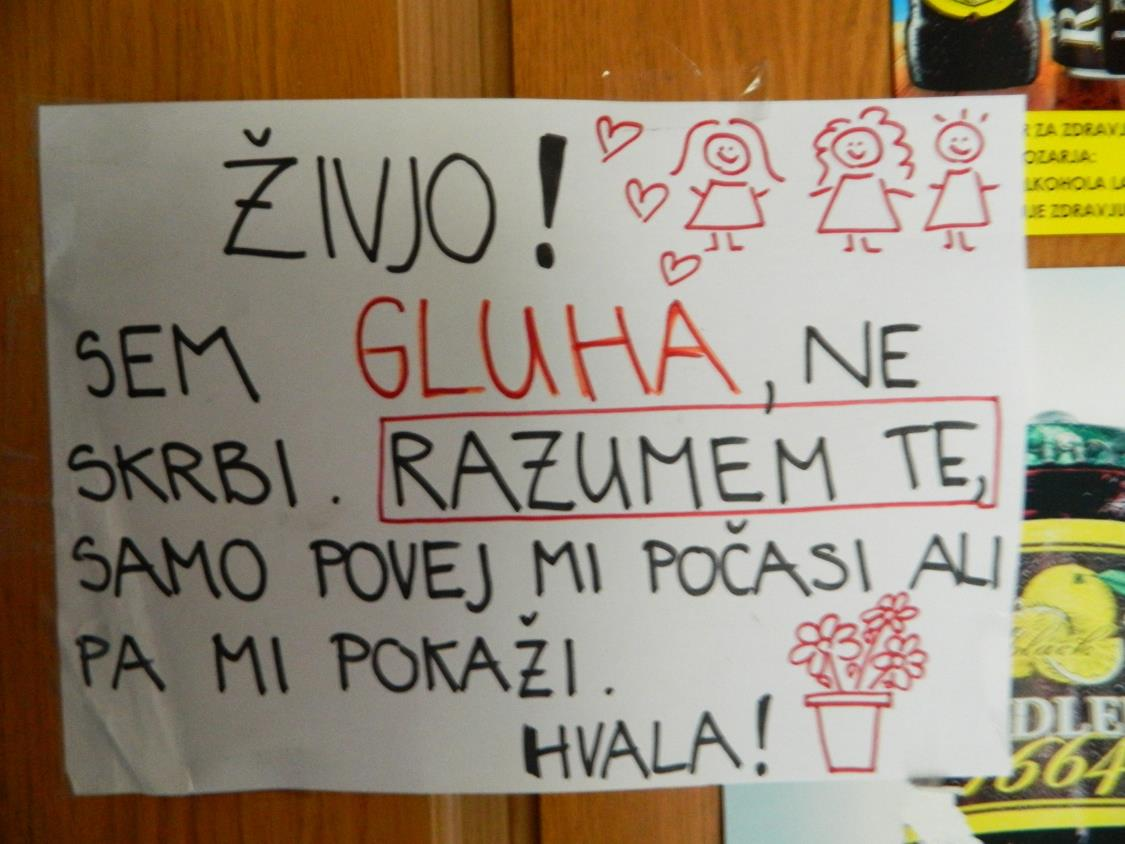 ŽIVJO!
SEM GLUHA, NE
SKRBI. RAZUMEM TE,
SAMO POVEJ MI POČASI ALI
PA MI POKAŽI.
HVALA!
R
ZA ZDRAVJ
OZARJA:
LKOHOLA LA
JE ZDRAVJU
DLE
1664